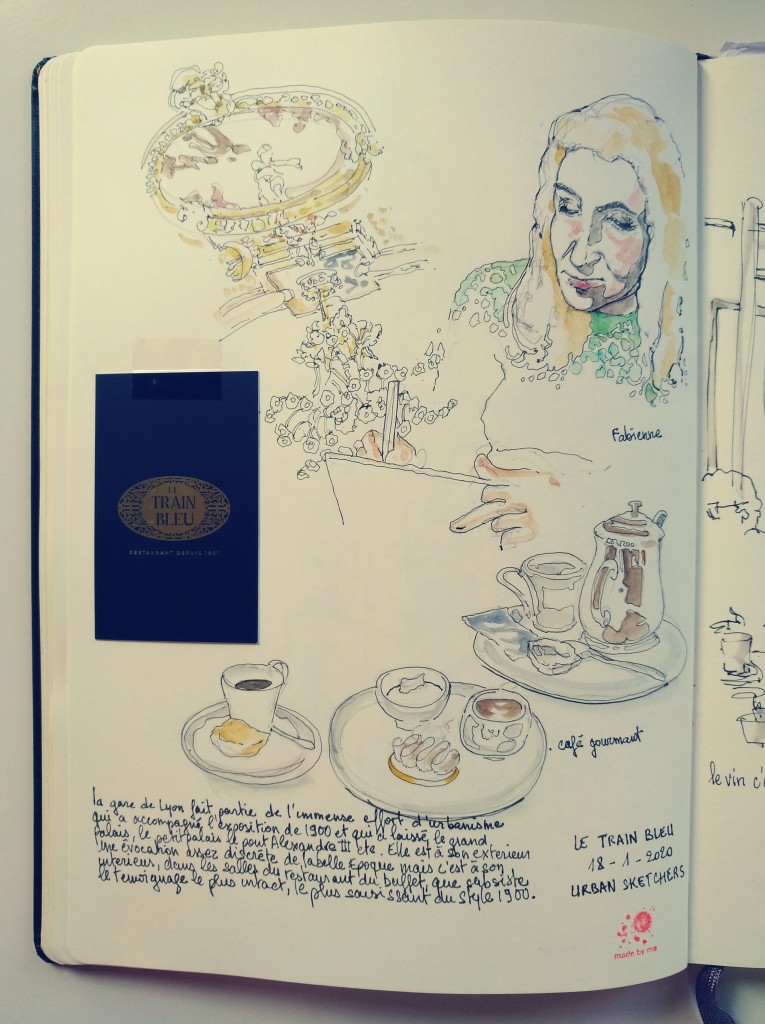 Fabienne
LE
TRAIN
BLEU
RESTAURANT DEPUIS 1901
. café gourmant
la gare de Lyon fait partie de l'immense effort d'urbanisme
qui a accompagné l'exposition de 1900 et qui a laissé le grand
palais, le petit palais le pont Alexandre III etc. Elle est à son extérieur
une évocation assez discrète de la belle Epoque mais c'est à son
intérieur, dans les salles du restaurant du buffet, que subsiste
le témoignage le plus intact, le plus saisissant du style 1900.
LE TRAIN BLEU
18-1-2020
URBAN SKETCHERS
made by me
le vin